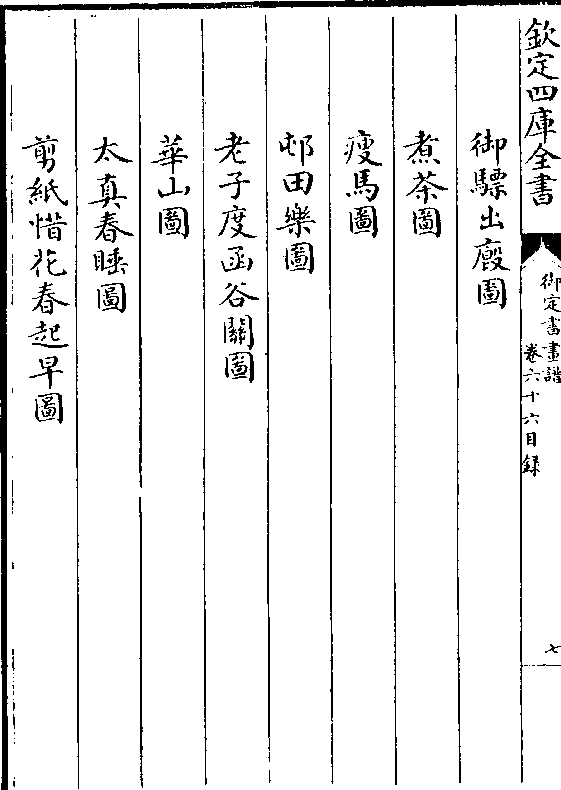 欽定四庫全書
御定書畫譜
卷六十六目録
七
御驃出廄圖
煮茶圖
瘦馬圖
邨田樂圖
老子度函谷關圖
華山圖
太真春睡圖
剪紙惜花春起早圖